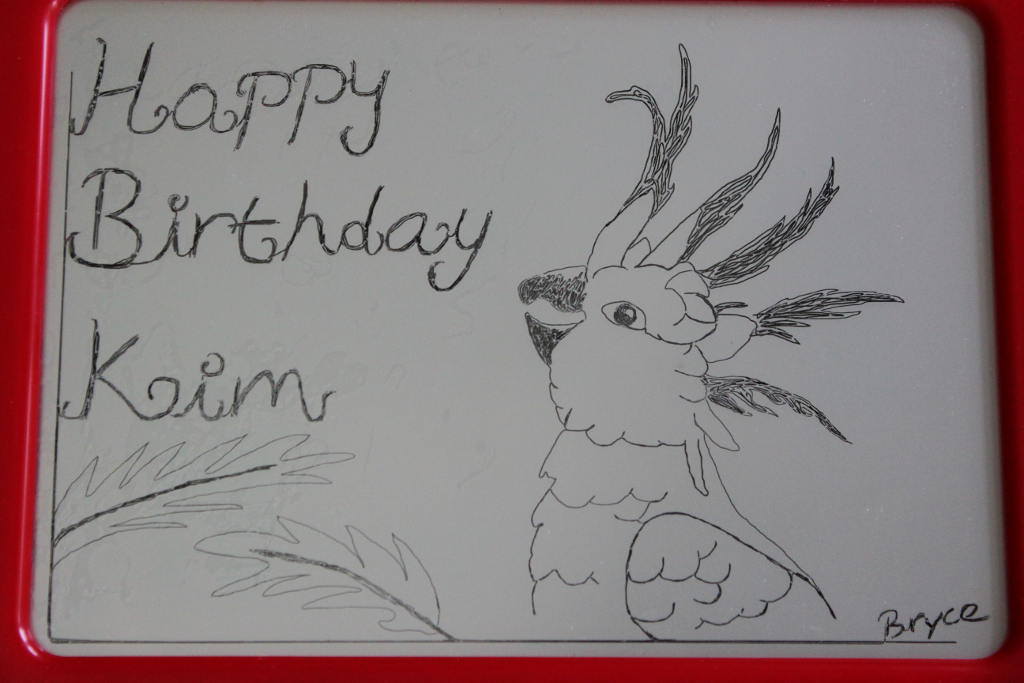 Happy
Birthday
Kim
Bryce